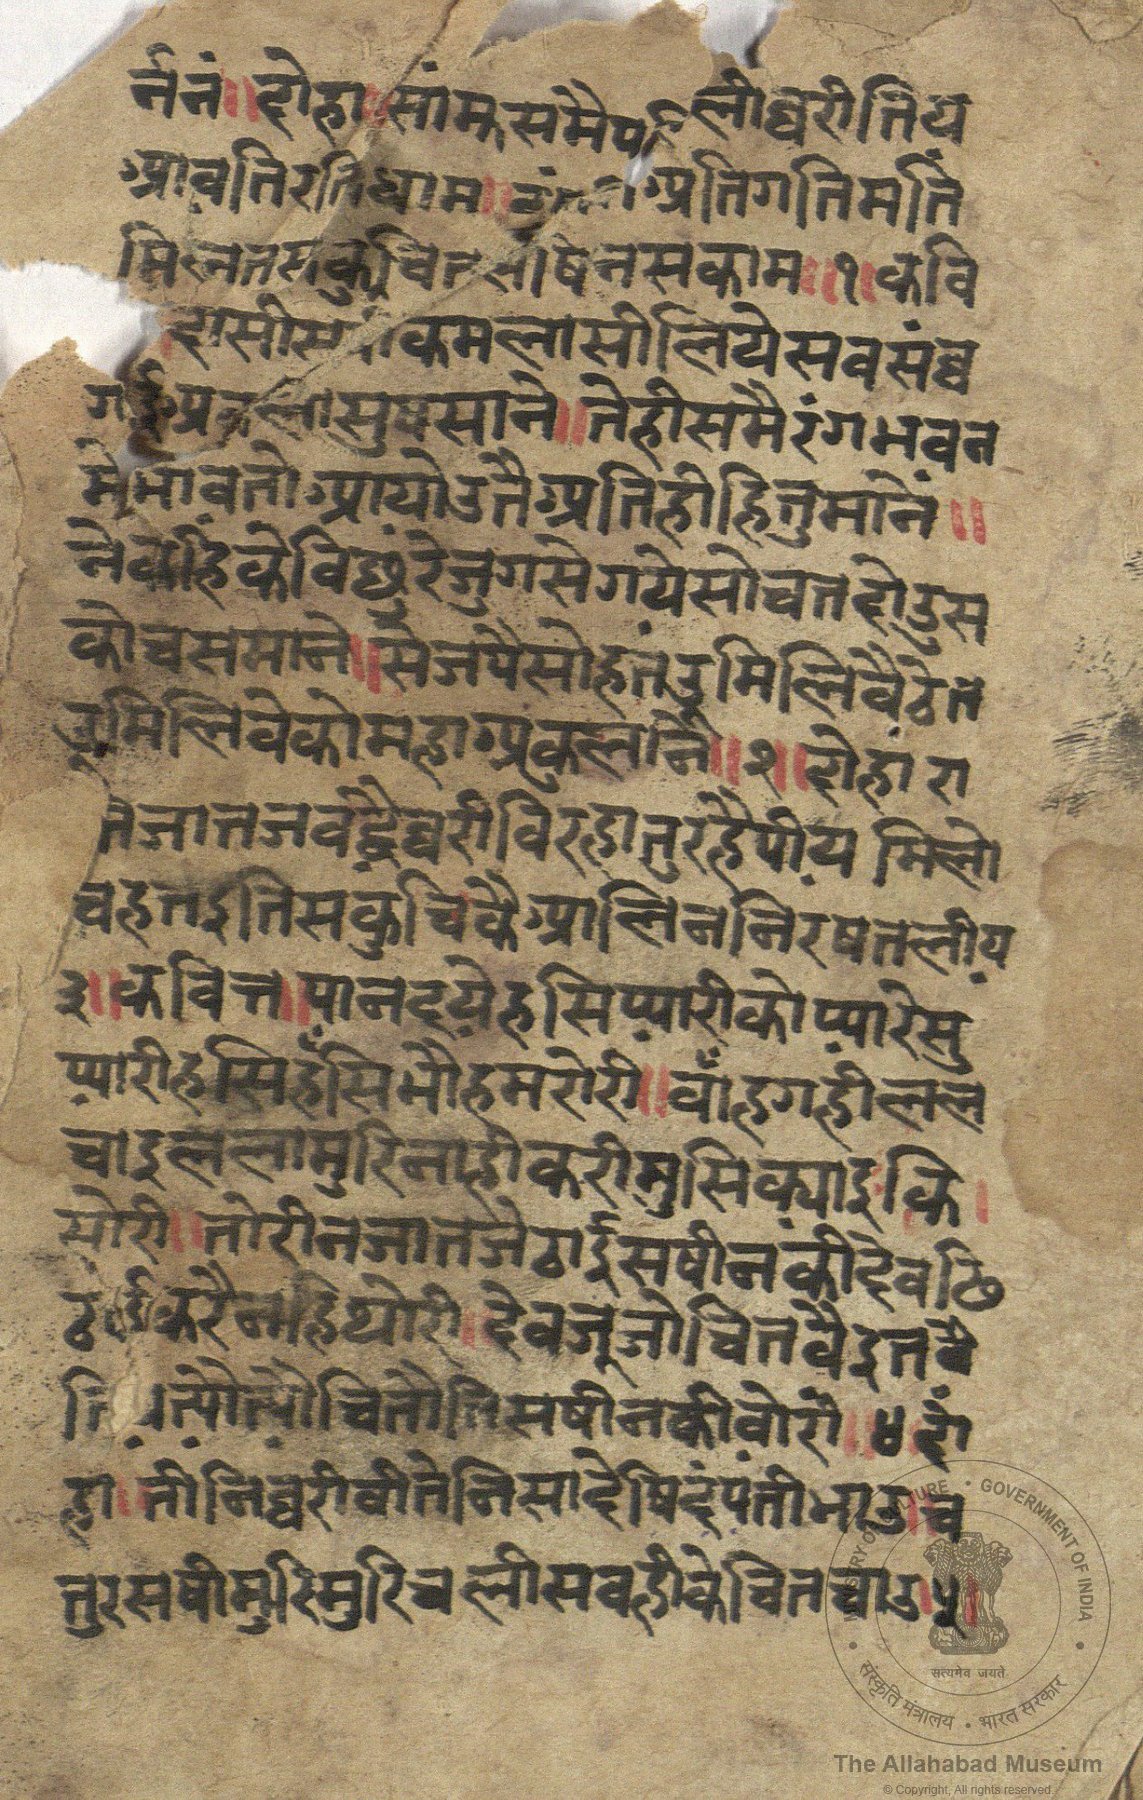 र्ननं॥दोहा॥सांमसमैप लीघरीतिय
आवतिरतिधाम॥ अतिगतिमति
मिलनतसकुचित सषिनसकाम॥१॥कवि
दासीसी कमलासीलियेसवसंघ
सुषसाने॥तेहीसमैरंगभवन
मेभावतोआयोउतैअतिहीहितुमाने॥
नेकहिकेविछुरेजुगसेगयेसोचतदोउस
कोचसमाने॥सेजपैसोहतदुमिलिवैठेत
उमिलिवेकोमहाअकुलाने॥२॥दोहा रा
तजातजवद्वैघरीविरहातुरहैपीय मिलो
चहतइतिसकुचिकैआलिननिरषतलीय
३॥कवित्त॥पानदयेहसिप्यारीकोप्यारेसु
प्यारीहसिहँसिभौहमरोरी॥वाँहगहीलल
चाइललामुरिनाहीकरीमुसिक्याइकि
सोरी॥तोरीनजातजेठाईसषीनकीदेवठि
ठाईकरैनहिथोरी॥देवजूजोचितवैइतवै
ति त्यौत्यौचितौतिसषीनकीवोरी॥४॥दो
हा॥तीनिघरीवीतेनिसादेषिदंपतीभाउ॥च
तुरसषीमुरिमुरिचलीसवहीकेचितचाउ॥५॥
MINISTRY OF CULTURE • GOVERNMENT OF INDIA
सत्यमेव जयते
संस्कृति मंत्रालय • भारत सरकार
The Allahabad Museum
© Copyright, All rights reserved.